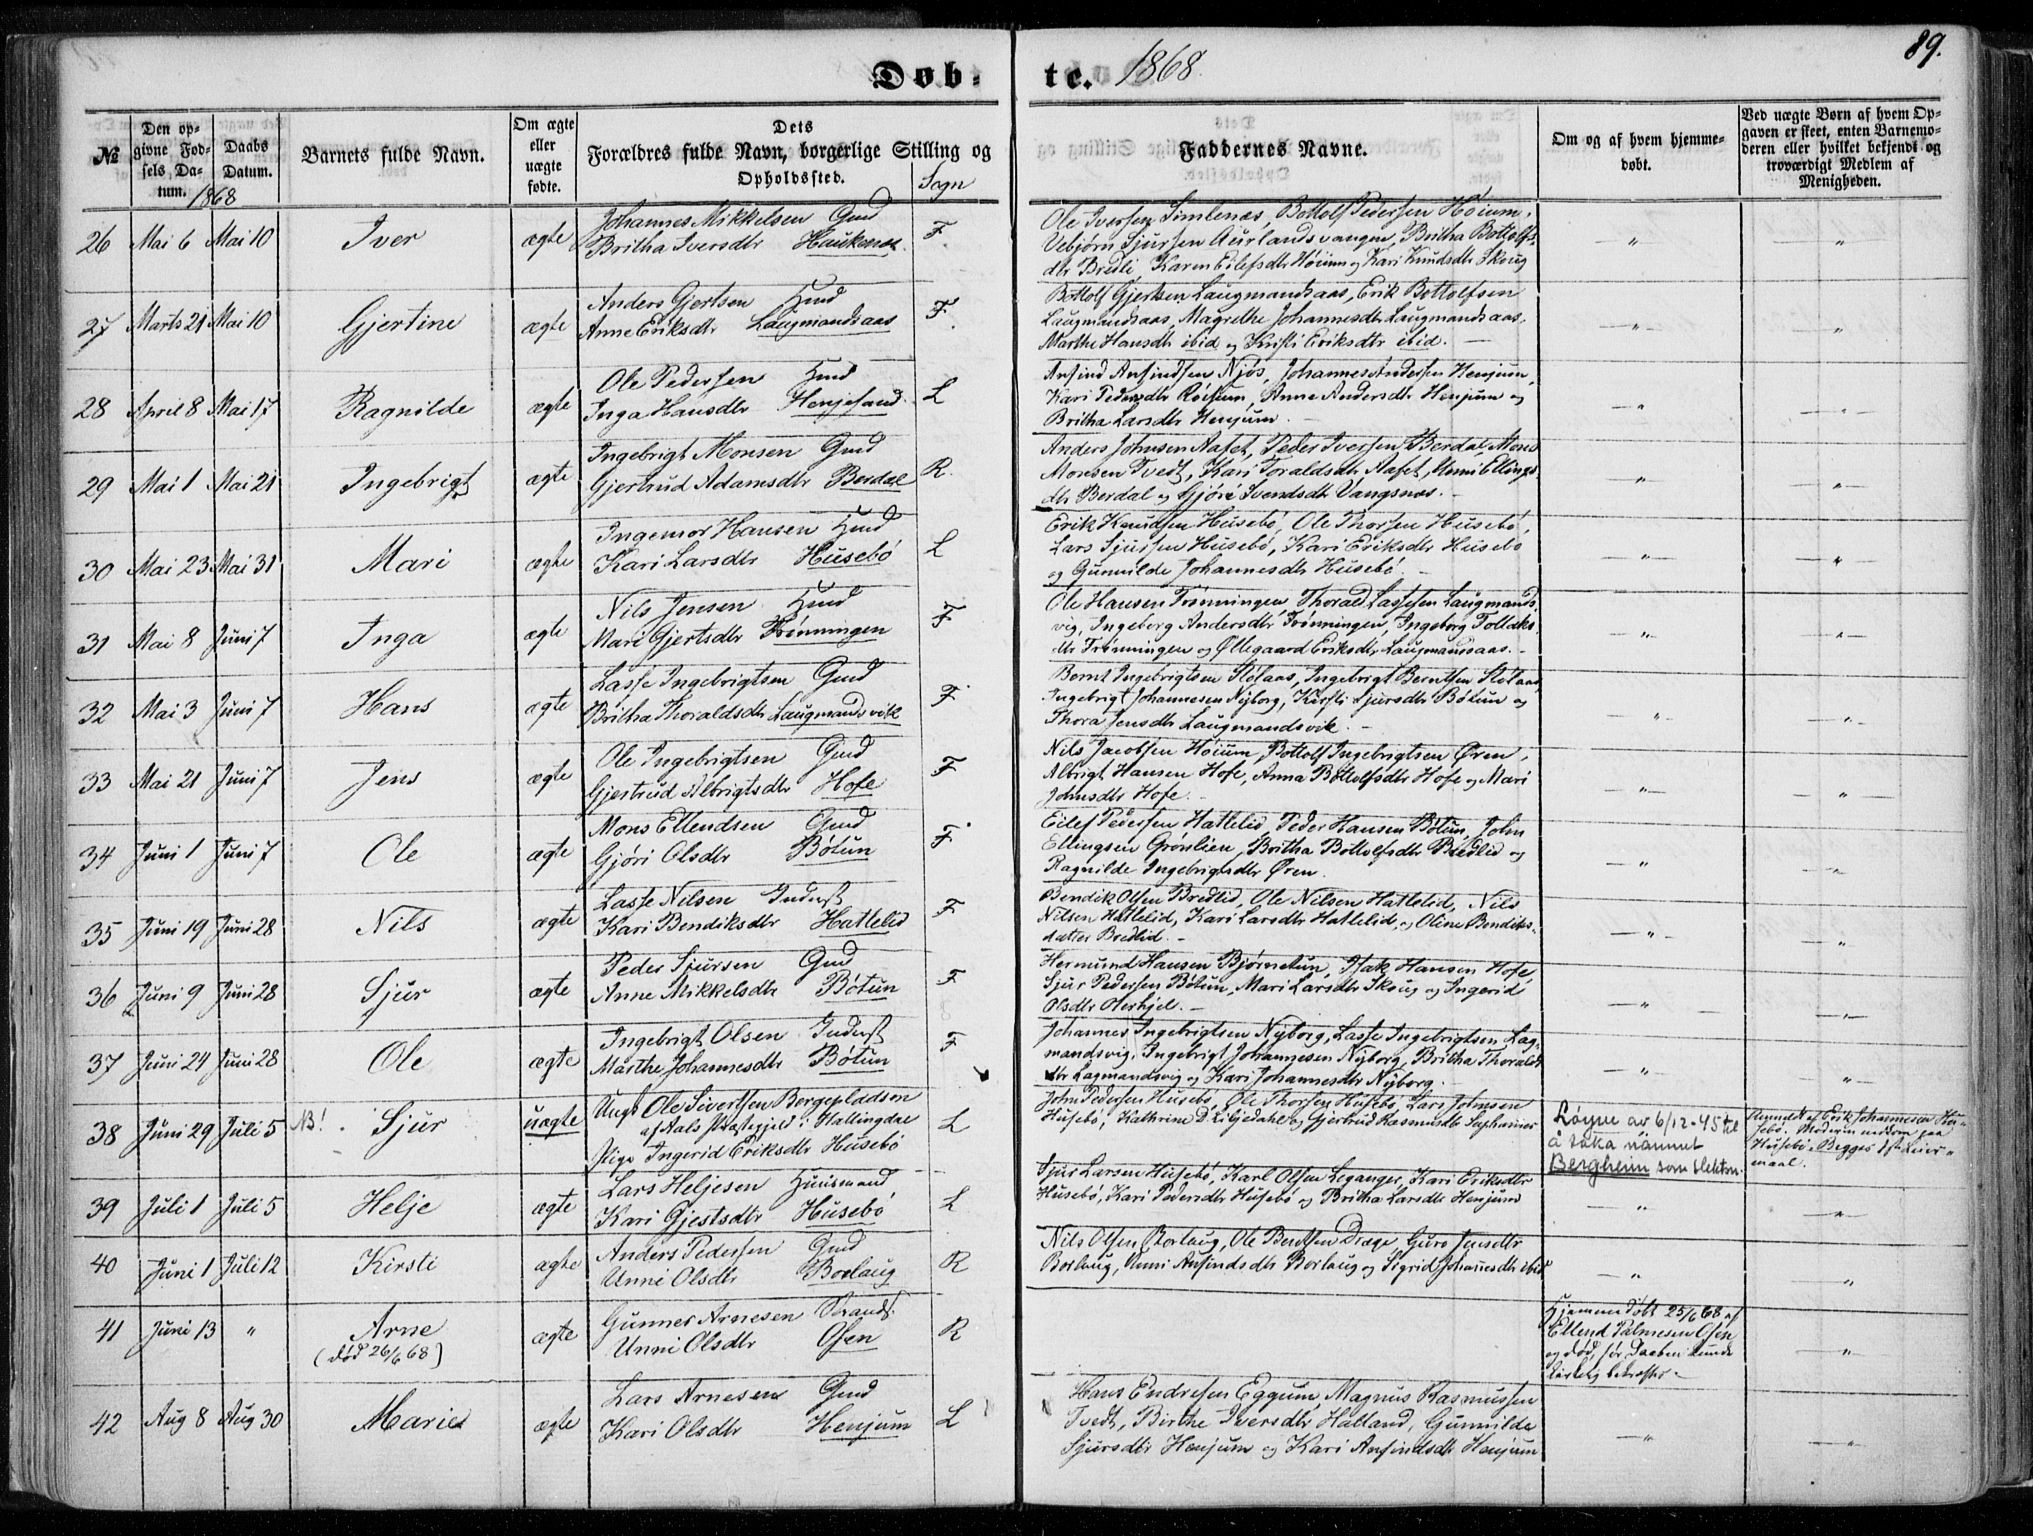 89.
Døb-
te. 1868.
№
Den op-
givne Fød-
sels, Da-
tum.
1868
Daabs
Datum.
Barnets fulde Navn.
Om ægte
eller
uægte
fødte.
Dets
Forældres fulde Navn, borgerlige Stilling og
Opholdssted.
Sogn
Faddernes Navne.
Om og af hvem hjemme-
døbt.
Ved uægte Børn af hvem Op-
gaven er skeet, enten Barnemo-
deren eller hvilket bekjendt og
troværdigt Medlem af
Menigheden.
26 Mai 6 Mai 10 Iver ægte
Johannes Mikkelsen Gmd
Britha Iversdtr Haukenæs F.
Ole Iversen Simlenæs, Bottolf Pedersen Høium,
Vebjørn Sjursen Aurlandsvangen, Britha Bottolfs-
dtr Bredli, Karen Eilefsdtr Høium og Kari Knudsdtr Skoug
27 Marts 21 Mai 10 Gjertine ægte
Anders Gjertsen Hmd
Anne Eriksdtr Laugmandsaas F.
Bottolf Gjertsen Laugmandsaas, Erik Bottolfsen
Laugmandsaas, Magrethe Johannesdtr Laugmandsaas,
Marthe Hansdtr ibid og Kristi Eriksdtr ibid.
28 April 8 Mai 17 Ragnilde ægte
Ole Pedersen Hmd
Inga Hansdtr Henjesand L
Ansind Ansindsen Njøs, Johannes Andersen Henjum,
Kari Pedersdtr Røisum, Anne Andersdtr Henjum og
Britha Larsdtr Henjum
29 Mai 1 Mai 21 Ingebrigt ægte
Ingebrigt Monsen Gmd
Gjertrud Adamsdtr Berdal R.
Anders Johnsen Aafet, Peder Iversen Berdal, Mons
Monsen Tvedt, Kari Toraldsdtr Aafet, Unni Ellings-
dtr Berdal og Gjøri Svendsdtr Vangsnæs.
30 Mai 23 Mai 31 Mari ægte
Ingemor Hansen Hmd
Kari Larsdtr Husebø L
Erik Knudsen Husebø, Ole Thorsen Husebø,
Lars Sjursen Husebø, Kari Eriksdtr Husebø
og Gunnilde Johannesdtr Husebø.
31 Mai 8 Juni 7 Inga ægte
Nils Jensen Hmd
Mari Gjertsdtr Frønningen F
Ole Hansen Frønningen Thorald Lassesen Laugmands-
vig, Ingeborg Andersdtr Frønningen, Ingeborg Tollaks-
dtr Frønningen og Øllegaard Eriksdtr Laugmansaas.
32 Mai 3 Juni 7 Hans ægte
Lasse Ingebrigtsen Gmd
Britha Thoraldsdtr Laugmandsvik F
Bernt Ingebrigtsen Stølaas, Ingebrigt Berntsen Stølaas,
Ingebrigt Johannesen Nyborg, Kirsti Sjursdtr Bøtun og
Thora Jensdtr Laugmandsvik.
33 Mai 21 Juni 7 Jens ægte
Ole Ingebrigtsen Gmd
Gjertrud Albrigtsdtr Hofe F
Nils Jacobsen Høium, Bottolf Ingebrigtsen Øren,
Albrigt Hansen Hofe, Anna Bottolfsdtr Hofe og Mari
Johnsdtr Hofe.
34 Juni 1 Juni 7 Ole ægte
Mons Ellendsen Gmd
Gjøri Olsdtr Bøtun F
Eilef Pedersen Hattelid, Peder Hansen Bøtun, John
Ellingsen Grønlien, Britha Bottolfsdtr Bredlid og
Ragnilde Ingebrigtsdtr Øren.
35 Juni 19 Juni 28 Nils ægte
Lasse Nilsen Inderst
Kari Bendiksdtr Hattelid F
Bendik Olsen Bredlid, Ole Nilsen Hattelid, Nils
Nilsen Hattelid, Kari Larsdtr Hattelid, og Oline Bendiks-
datter Bredlid.
36 Juni 9 Juni 28 Sjur ægte
Peder Sjursen Gmd
Anne Mikkelsdtr Bøtun F
Hermund Hansen Bjørnetun, Isak Hansen Hofe
Sjur Pedersen Bøtun, Mari Larsdtr Skoug og Ingerid
Olsdtr
37 Juni 24 Juni 28 Ole ægte
Ingebrigt Olsen Inderst
Marthe Johannesdtr Bøtun F
Johannes Ingebrigtsen Nyborg, Lasse Ingebrigtsen Lag-
mandsvig, Ingebrigt Johannesen Nyborg, Britha Thoralds
dtr Lagmandsvig og Kari Johannesdtr Nyborg.
38 Juni 29 Juli 5 NB! Sjur uægte
Ungk Ole Sivertsen Bergepladsen
af Aals Præstegjeld i Hallingdal
Pige Ingerid Eriksdtr Husebø L
John Pedersen Husebø, Ole Thorsen Husebø, Lars Johnsen
Husebø, Kathrine D. Liljedahl og Gjertrud Rasmusdtr
Løyve av 6/12-45 til
å taka namnet
Bergheim som slektsn.
Anmeldt af Erik Johannesen Hu-
sebø. Moderen
Husebø. Begges 1ste Leier-
maal.
39 Juli 1 Juli 5 Helje ægte
Lars Heljesen Huusmand
Kari Gjestsdtr Husebø L
Sjur Larsen Husebø, Karl Olsen Leganger, Kari Eriksdtr
Husebø, Kari Pedersdtr Husebø og Britha Larsdtr Henjum
40 Juni 1 Juli 12 Kirsti ægte
Anders Pedersen Gmd
Unni Olsdtr Borlaug R
Nils Olsen Borlaug, Ole Bentsen Dræge, Guro Jensdtr
Borlaug, Unni Ansindsdtr Borlaug og Sigrid Johanesdtr ibid
41 Juni 13 " Arne
(død 26/6 68) ægte
Gunner Arnesen Strands.
Unni Olsdtr Osen R
Hjemmedøbt 25/6 68 af
Ellend Palmesen Osen
og død, før Daaben kunde
blive bekræftet.
42 Aug 8 Aug 30 Marie ægte
Lars Arnesen Gmd
Kari Olsdtr Henjum L
Hans Endresen Eggum, Magnus Rasmussen
Tvedt, Birthe Iversdtr Halland, Gunnilda
Sjursdtr Henjum og Kari Ansindsdtr Henjum